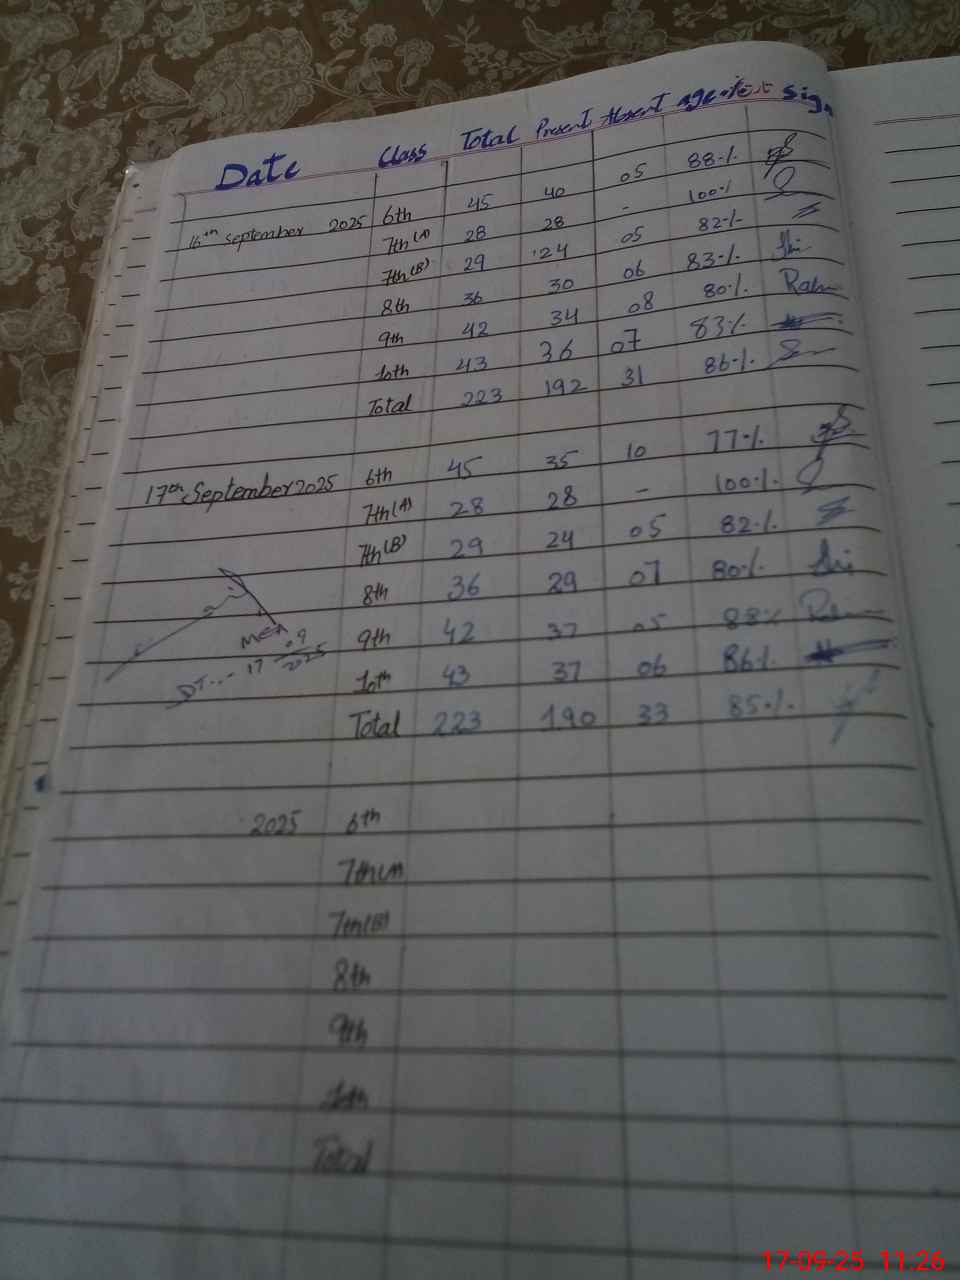 Date Class Total Present Absent age Sign
16th september 2025 6th 45 40 05 88%
7th(A) 28 28 - 100%
7th(B) 29 24 05 82%
8th 36 30 06 83%
9th 42 34 08 80%
10th 43 36 07 83%
Total 223 192 31 86%
17th September 2025 6th 45 35 10 77%
7th(A) 28 28 - 100%
7th(B) 29 24 05 82%
8th 36 29 07 80%
9th 42 37 05 88%
10th 43 37 06 86%
Total 223 190 33 85%
MEA
DT... 17 09 2025
2025 6th
7th(A)
7th(B)
8th
9th
10th
Total
17-09-25 11:26